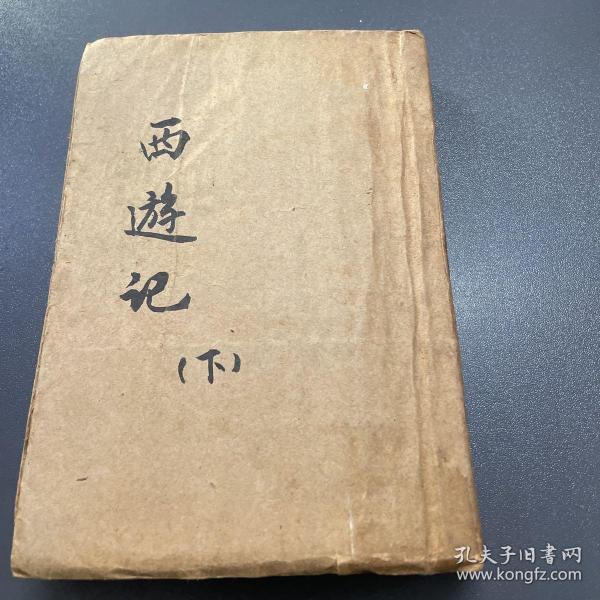 西遊记
（下）
孔夫子旧書网
www.kongfz.com